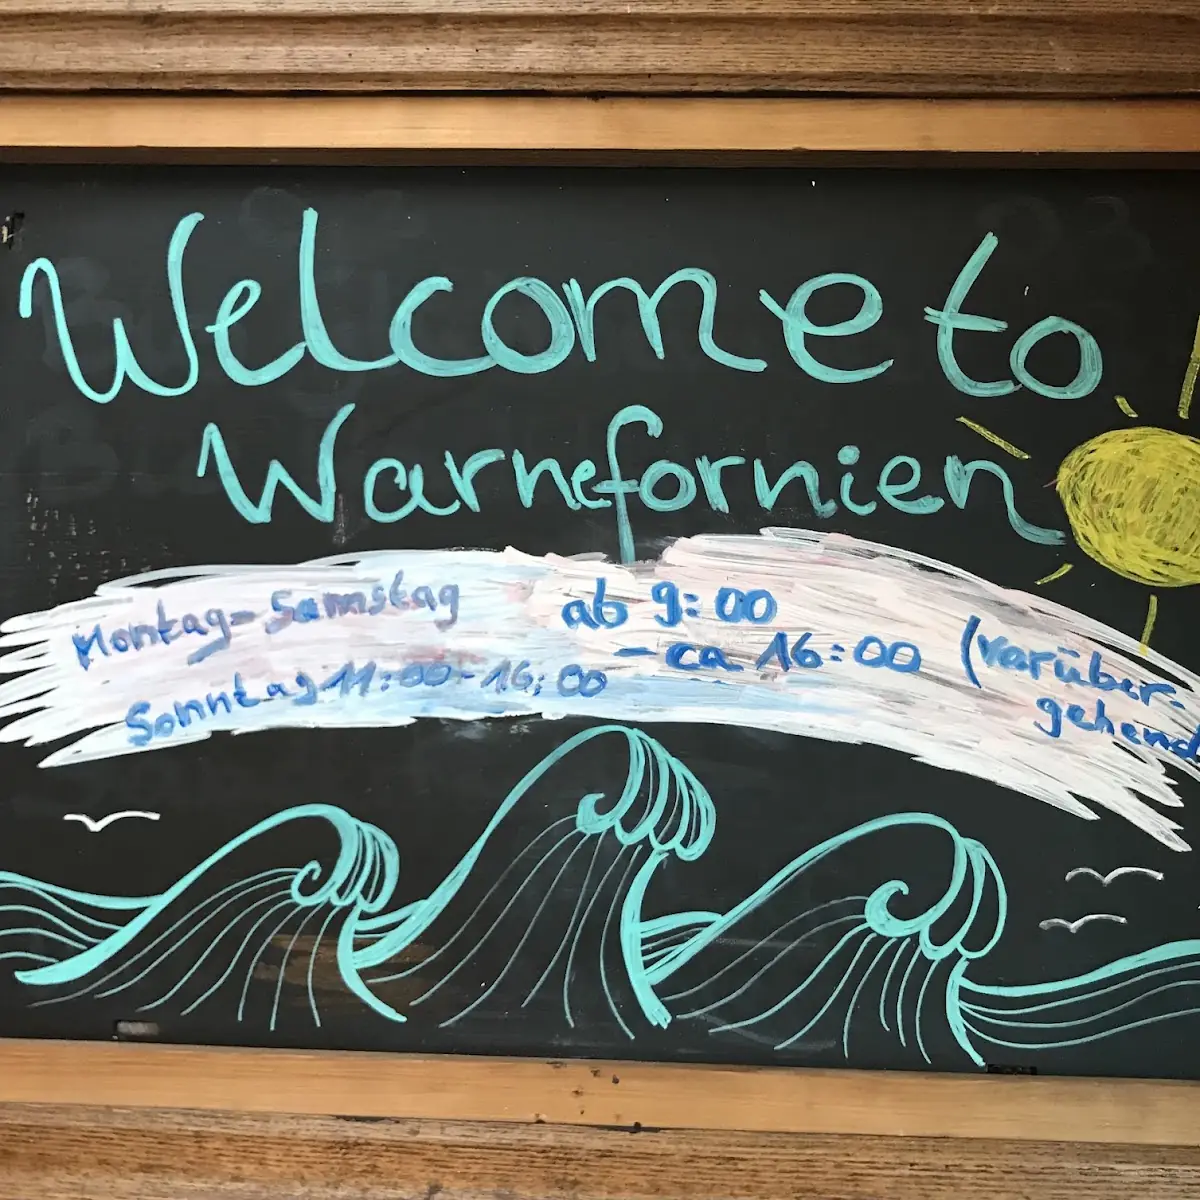 Welcome to
Warnefornien
Montag-Samstag ab 9:00
- ca 16:00 (vorüber-
gehend
Sonntag 11:00-16:00